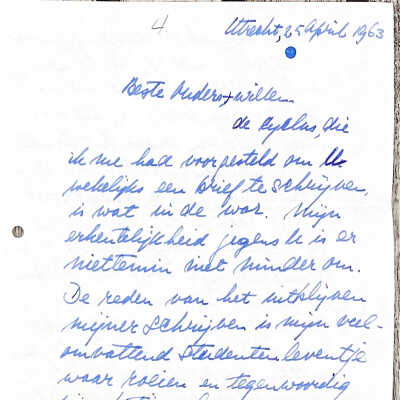 4.
Utrecht, 25 April 1963
Beste Ouders + Willem
de cyclus, die
ik me had voorgesteld om U
wekelijks een brief te schrijven,
is wat in de war. Mijn
erkentelijkheid jegens U is er
niettemin niet minder om.
De reden van het uitblijven
mijner schrijven is mijn veel-
omvattend studentenleventje
waar roeien en tegenwoordig